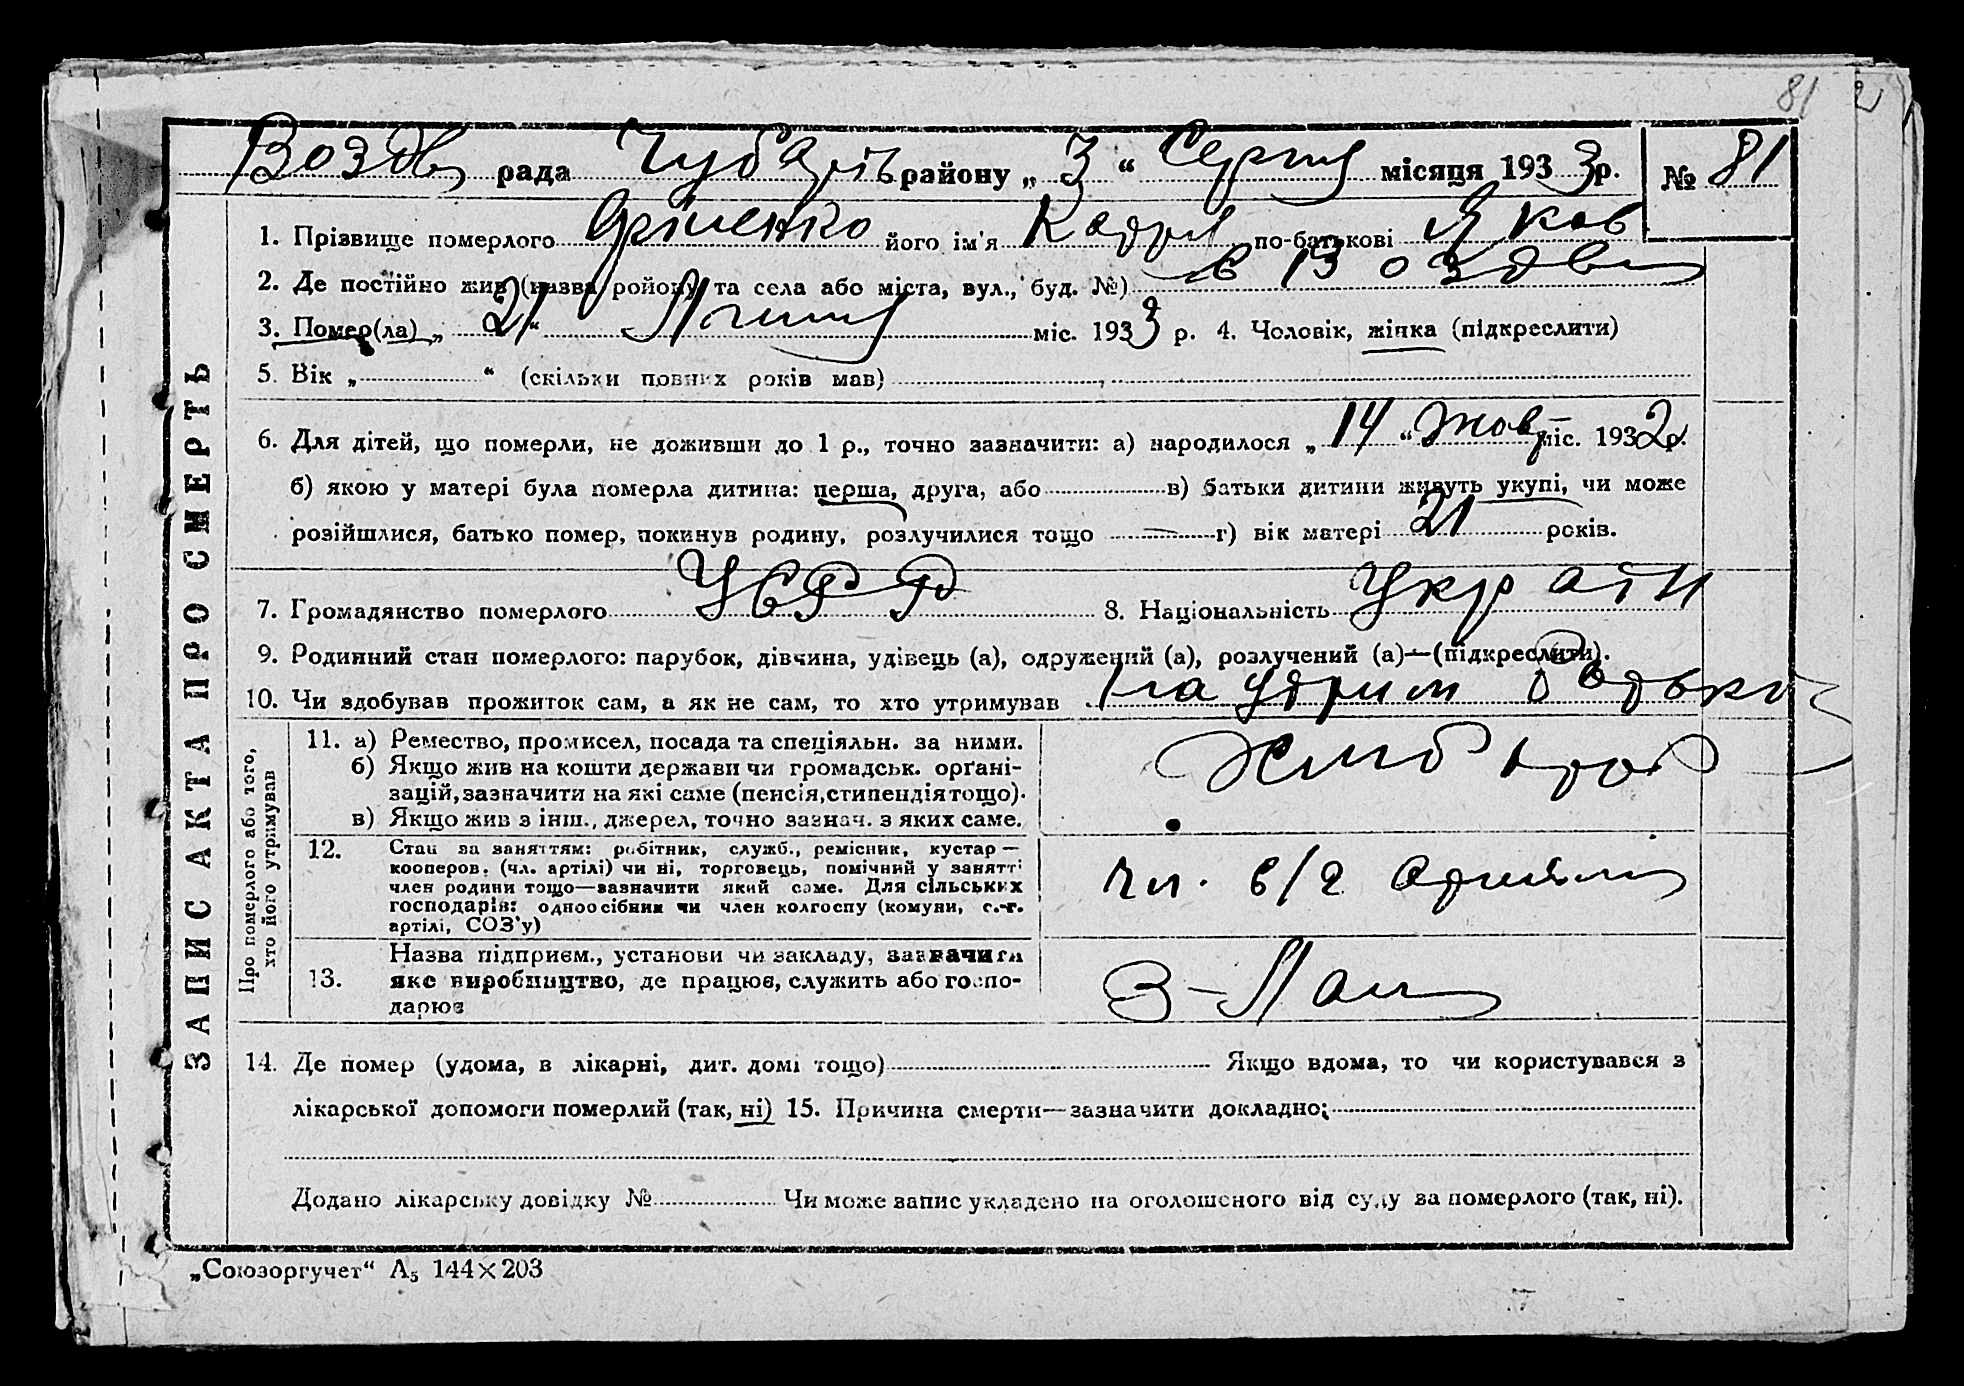 81
Воздв рада Чубарів району „ 3 “ Серпня місяця 1933 р. № 81
1. Прізвище померлого його ім'я по-батькові Яков
2. Де постійно жив (назва району та села або міста, вул., буд. №) с Воздви
3. Помер(ла) „ 21 “ Липня міс. 1933 р. 4. Чоловік, жінка (підкреслити)
5. Вік „ “ (скільки повних років мав)
6. Для дітей, що померли, не доживши до 1 р., точно зазначити: а) народилося „ 14 “ Жов міс. 1932 р.
б) якою у матері була померла дитина: перша, друга, або в) батьки дитини живуть укупі, чи може
розійшлися, батько помер, покинув родину, розлучилися тощо — г) вік матері 21 років.
7. Громадянство померлого УСРР 8. Національність Украін
9. Родинний стан померлого: парубок, дівчина, удівець (а), одружений (а), розлучений (а)—(підкреслити).
10. Чи здобував прожиток сам, а як не сам, то хто утримував На утрим батьков
ЗАПИС АКТА ПРО СМЕРТЬ
Про померлого або того, хто його утримував
11. а) Ремество, промисел, посада та спеціяльн. за ними.
б) Якщо жив на кошти держави чи громадськ. орґані-
зацій, зазначити на які саме (пенсія, стипендія тощо).
в) Якщо жив з інш., джерел, точно зазнач. з яких саме.
Хлібороб
12. Стан за заняттям: робітник, служб., ремісник, кустар—
кооперов. (чл. артілі) чи ні, торговець, помічний у занятті
член родини тощо—зазначити який саме. Для сільських
господарів: одноосібник чи член колгоспу (комуни, с.-г.
артілі, СОЗ'у)
чл. с/г
13. Назва підприєм., установи чи закладу, зазначити
яке виробництво, де працює, служить або госпо-
дарює
З-Лан
14. Де помер (удома, в лікарні, дит. домі тощо) Якщо вдома, то чи користувався з
лікарської допомоги померлий (так, ні) 15. Причина смерти—зазначити докладно:
Додано лікарську довідку № Чи може запис укладено на оголошеного від суду за померлого (так, ні).
„Союзоргучет“ А₅ 144×203